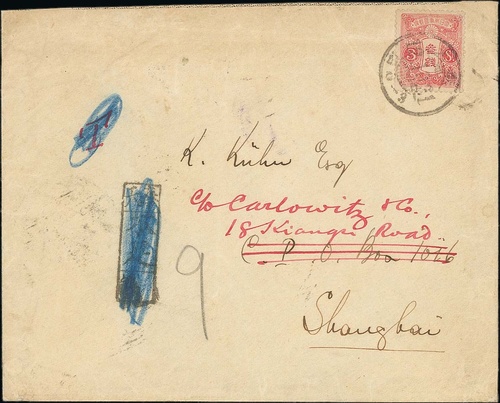 T
K. Kühn Esq
c/o Carlowitz & Co.,
18 Kiangse Road
C P. O. Box 1026
9
Shanghai